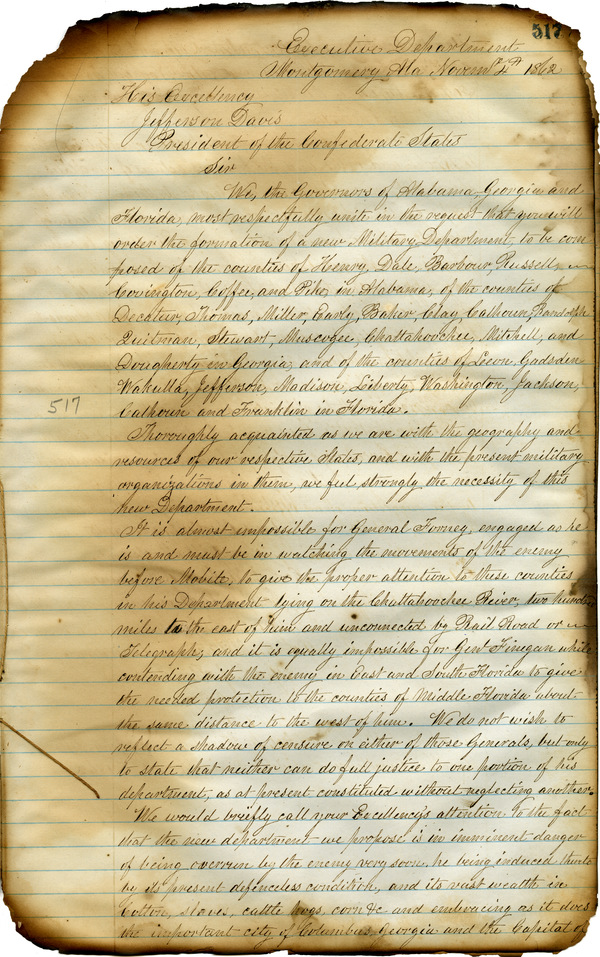 517
Executive Department
Montgomery Ala Novemr 4th 1862
His Excellency
Jefferson Davis
President of the Confederate States
Sir
We, the Governors of Alabama Georgia and
Florida, most respectfully unite in the request that you will
order the formation of a new Military Department, to be com
posed of the counties of Henry, Dale, Barbour, Russell,
Covington, Coffee, and Pike, in Alabama, of the counties of
Decatur, Thomas, Miller, Early, Baker, Clay, Calhoun,
Quitman, Stewart, Muscogee, Chattahoochee, Mitchell, and
Dougherty in Georgia, and of the counties of Leon, Gadsden
Wakulla, Jefferson, Madison, Liberty, Washington, Jackson,
517
Calhoun and Franklin in Florida.
Thoroughly acquainted as we are with the geography and
resources of our respective States, and with the present military
organizations in them, we feel strongly the necessity of this
new Department.
It is almost impossible for General Forney, engaged as he
is and must be in watching the movements of the enemy
before Mobile, to give the proper attention to these counties
in his Department lying on the Chattahoochee River, two hundred
miles to the east of him and unconnected by Rail Road or
Telegraph, and it is equally impossible for Genl Finegan while
contending with the enemy in East and South Florida to give
the needed protection to the counties of Middle Florida about
the same distance to the west of him. We do not wish to
reflect a shadow of censure on either of those Generals, but only
to state that neither can do full justice to one portion of his
department, as at present constituted without neglecting another.
We would briefly call your Excellency's attention to the fact
that the new department we propose is in imminent danger
of being overrun by the enemy very soon, he being induced thereto
by its present defenceless condition, and its vast wealth in
Cotton, slaves, cattle hogs, corn &c and embracing as it does
the important city of Columbus, Georgia and the Capital of